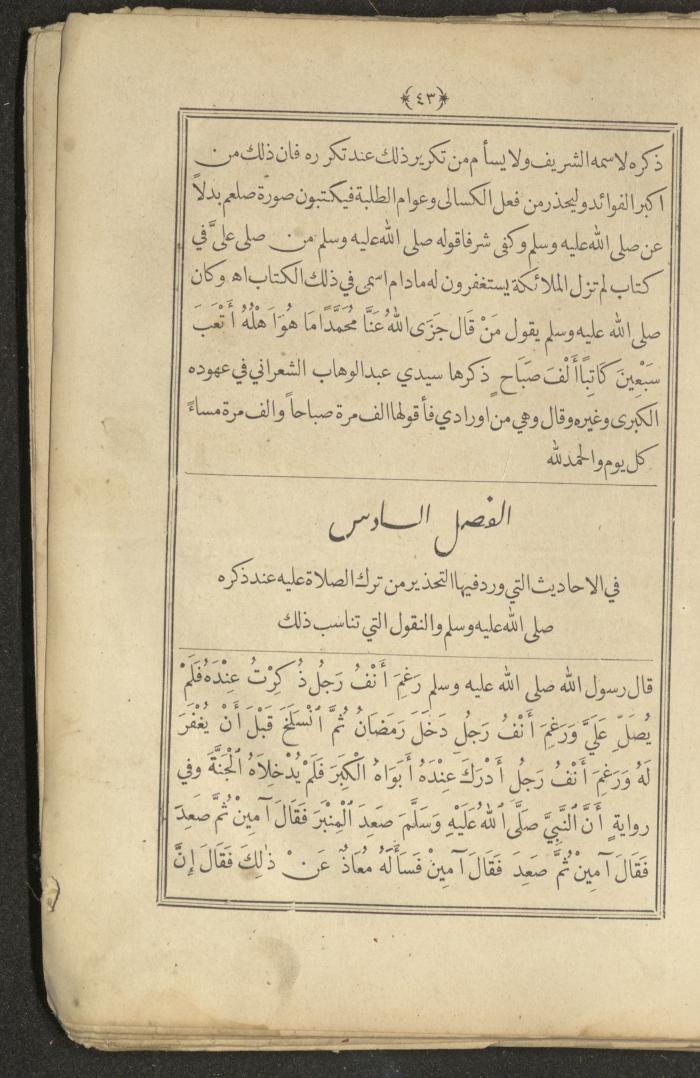 ﴿٤٣﴾
ذكره لاسمه الشريف ولا يسأم من تكرير ذلك عند تكرره فان ذلك من
اكبر الفوائد وليحذر من فعل الكسالى وعوام الطلبة فيكتبون صورة صلعم بدلاً
عن صلى الله عليه وسلم وكفى شرفا قوله صلى الله عليه وسلم من صلى عليَّ في
كتاب لم تزل الملائكة يستغفرون له مادام اسمى في ذلك الكتاب اه وكان
صلى الله عليه وسلم يقول مَنْ قَالَ جَزَى اللهُ عَنَّا مُحَمَّدًا مَا هُوَ أَهْلُهُ أَتْعَبَ
سَبْعِينَ كَاتِبًا أَلْفَ صَبَاحٍ ذكرها سيدي عبد الوهاب الشعراني في عهوده
الكبرى وغيره وقال وهي من اورادي فأقولها الف مرة صباحاً والف مرة مساءً
كل يوم والحمد لله
الفصل السادس
في الاحاديث التي ورد فيها التحذير من ترك الصلاة عليه عند ذكره
صلى الله عليه وسلم والنقول التي تناسب ذلك
قال رسول الله صلى الله عليه وسلم رَغِمَ أَنْفُ رَجُلٍ ذُكِرْتُ عِنْدَهُ فَلَمْ
يُصَلِّ عَلَيَّ وَرَغِمَ أَنْفُ رَجُلٍ دَخَلَ رَمَضَانُ ثُمَّ ٱنْسَلَخَ قَبْلَ أَنْ يُغْفَرَ
لَهُ وَرَغِمَ أَنْفُ رَجُلٍ أَدْرَكَ عِنْدَهُ أَبَوَاهُ الْكِبَرَ فَلَمْ يُدْخِلَاهُ الْجَنَّةَ وفي
روايةٍ أَنَّ ٱلنَّبِيَّ صَلَّى ٱللهُ عَلَيْهِ وَسَلَّمَ صَعِدَ ٱلْمِنْبَرَ فَقَالَ آمِينْ ثُمَّ صَعِدَ
فَقَالَ آمِينْ ثُمَّ صَعِدَ فَقَالَ آمِينْ فَسَأَلَهُ مُعَاذٌ عَنْ ذٰلِكَ فَقَالَ إِنَّ